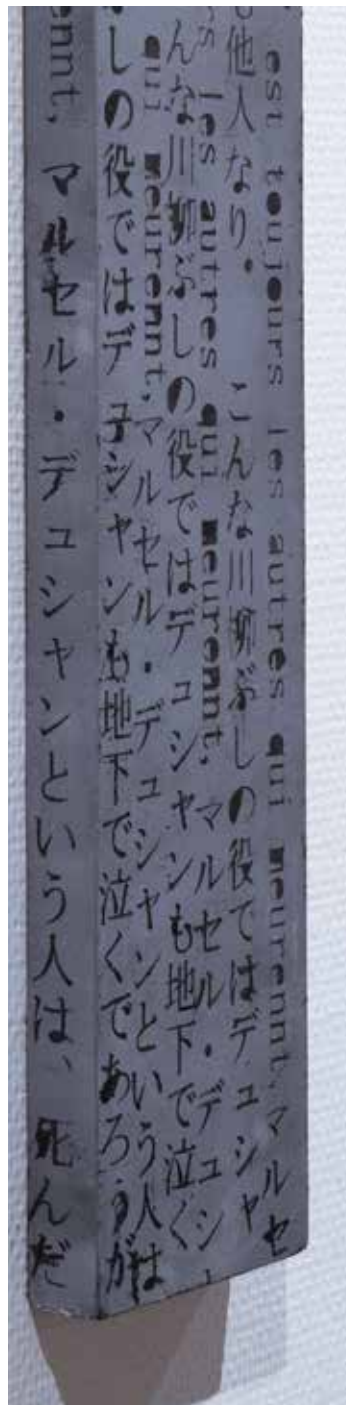 est toujours les autres qui meurennt. マルセ
も他人なり。 こんな川柳ぶしの役ではデュシャ
rs les autres qui meurennt. マルセル・デュシ
んな川柳ぶしの役ではデュシャンも地下で泣く
qui meurennt. マルセル・デュシャンという人は
しの役ではデュシャンも地下で泣くであろうが
ennt. マルセル・デュシャンという人は、死んだ